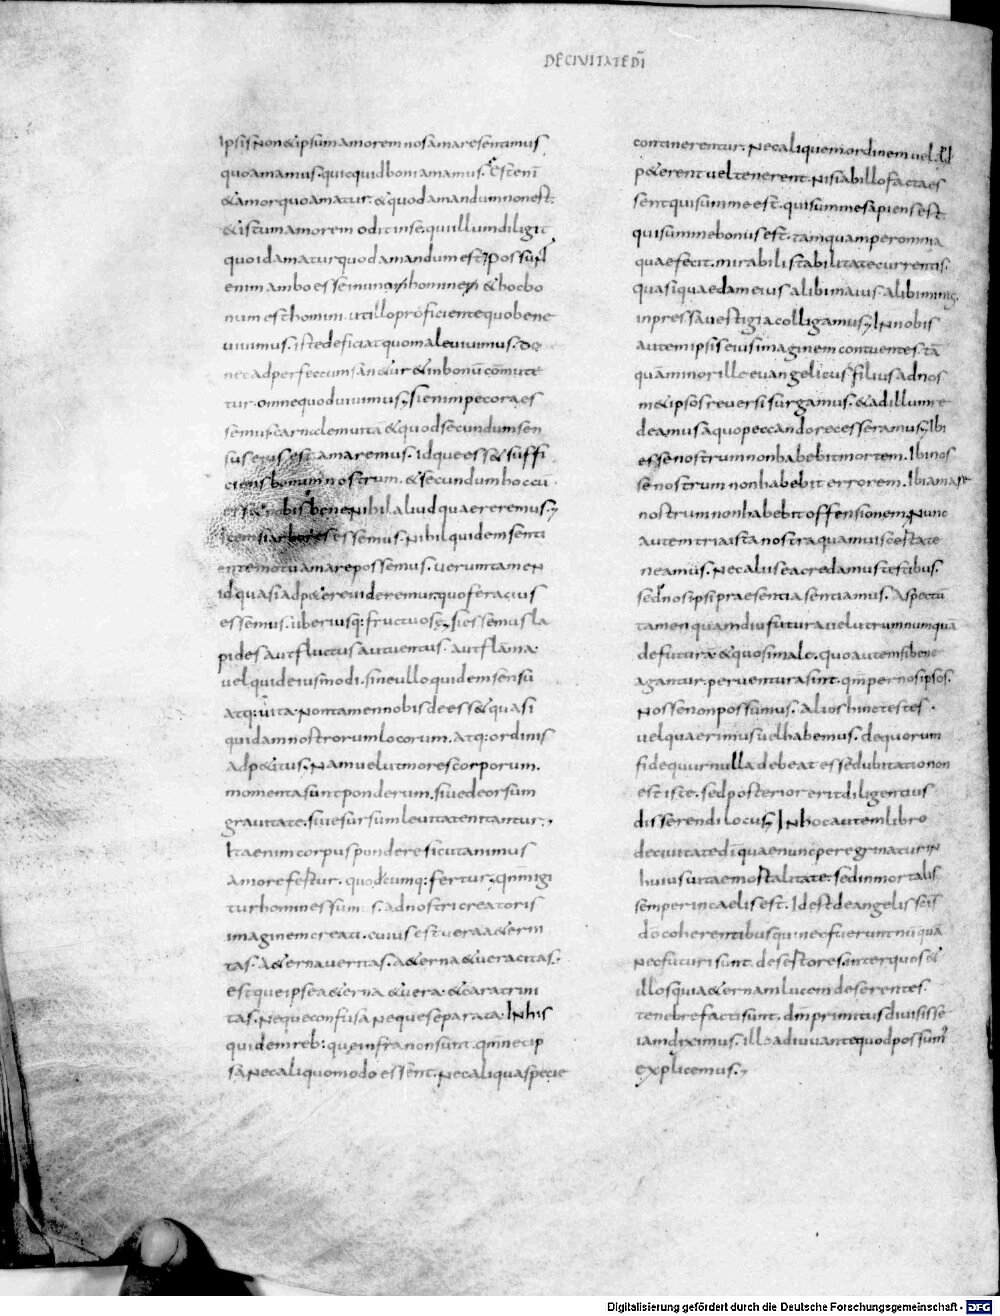 DECIUITATEDI
ipsisnon&ipsumamoremnosamaresentimus
quoamamus. quicquidboniamamus. Esteni
&amorquoamatur. & quodamandumnonest.
&istumamorem oditinse. quiillumdiligit
quoidamaturquodamandumest; possun
enimamboesseinuno homine & hocbo
num esthomini. utilloproficientequobene
uiuimus. istedeficiat quomaleuiuimus. Do
necadperfectumsan&ur &inbonū cōmute
tur. omnequoduiuimus; sienimpecoraes
semus. carnalemuitā &quodsecundumsen
suseiusestamaremus. Idqueess& suffi
ciensbonumnostrum. &secundumhoccū
ess& nobisbeneNihilaliud quaereremus;
Itemsiarboresessemus. Nihil quidemsenti
entemotuamarepossemus. ueruntamen
idquasiadp&ereuideremur. quoferacius
essemus. uberiusq: fructuos; siessemusla
pidesautfluctusautuentus. autflāma.
uelquideiusmodi. sineulloquidemsensū
atq: uita. Nontamennobisdeess& quasi
quidamnostrorumlocorum. atq: ordinis
adp&itus. Namuelutmorescorporum.
momentasuntponderum. siuedeorsum
grauitate. siuesursūmleuitatenitantur;
Itaenimcorpusponderesicutanimus
amorefertur. quocumq: fertur. qnmigi
turhominessumus. adnostricreatoris
imaginemcreati. cuiusestueraa&erni
tas. a&ernaueritas. a&erna&ueracaritas.
estqueipsea&erna. &uera. &caratrini
tas. Nequeconfusa Nequeseparata. INhis
quidemreb: quaeinfranonsunt. qmnecip
saNecaliquomodoessent. Necaliquaspecie
continerentur. Necaliquemordinemuelad
p&erent uel tenerent. Nisiabillofactaes
sentquisummeest. quisummesapiensest
quisummebonusest. tamquamperomnia
quaefecit. mirabilistabilitatecurrentis.
quasiquaedameius alibimaius. alibiminus
inpressauestigiacolligamus; INnobis
autemipsiseiusimaginemcontuentes. tā
quāminorilleeuangelicusfiliusadnos
m&ipsosreuersisurgamus. &adillumre
deamusaquopeccandorecesseramus; Ibi
essenostrumnonhabebitmortem. Ibinos
senostrumnonhabebiterrorem. Ibiamare
nostrumnonhabebitoffensionem; Nunc
autemtriaistanostraquamuiscertate
neamus. Necaliiseacredamustestibus.
sednosipsipraesentiasentiamus. Aspectū
tamenquamdiufuturauelutrumnumquā
defutura. &quosimale. quoautemsibene
agantur. peruenturasint. qmpernosipsos.
Nossenonpossumus. Alioshinctestes.
uelquaerimusuelhabemus. dequorum
fidequurnulladebeatessedubitationon
estiste. sedposteriorerit diligentius
disserendilocus; INhocautemlibro
deciuitatedīquaenuncperegrinaturin
huiusuitaemortalitate. sedinmortalis
semperincaelisest. Idestdeangelissc̄is
dō coherentibusquinecfueruntnū quā
Necfuturisunt. desertores. interquos&
illosquia&ernamlucemdeserentes.
tenebrefactisunt. dm̄primitusdiuisisse
iamdiximus. illoadiuuantequodpossum'
explicemus.;
Digitalisierung gefördert durch die Deutsche Forschungsgemeinschaft - DFG